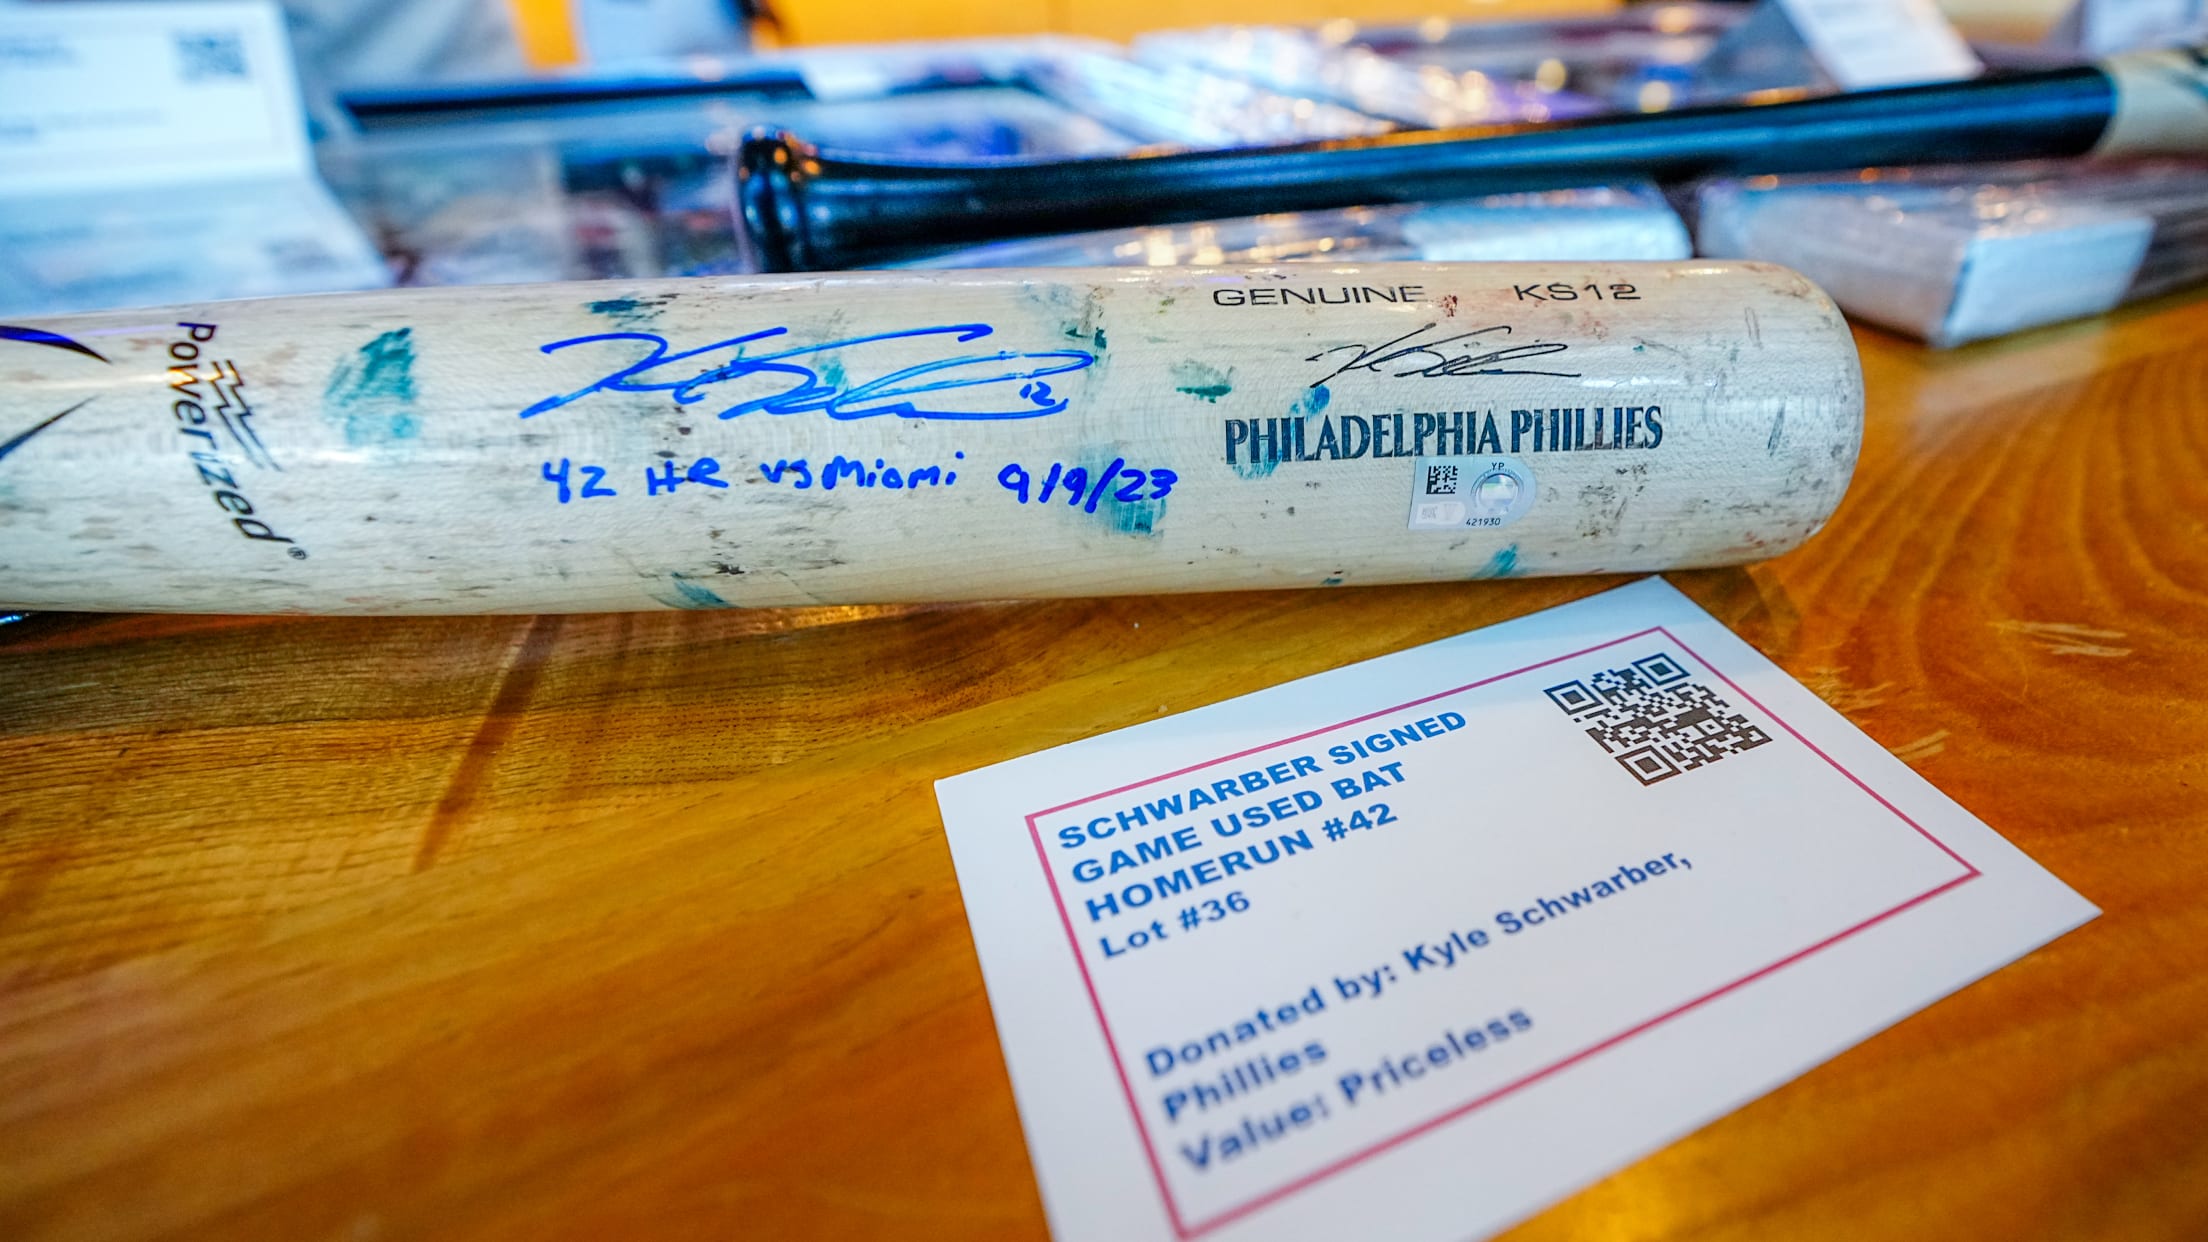 Powerized®
12
42 HR vs Miami 9/9/23
GENUINE KS12
PHILADELPHIA PHILLIES
YP
421930
SCHWARBER SIGNED
GAME USED BAT
HOMERUN #42
Lot #36
Donated by: Kyle Schwarber,
Phillies
Value: Priceless